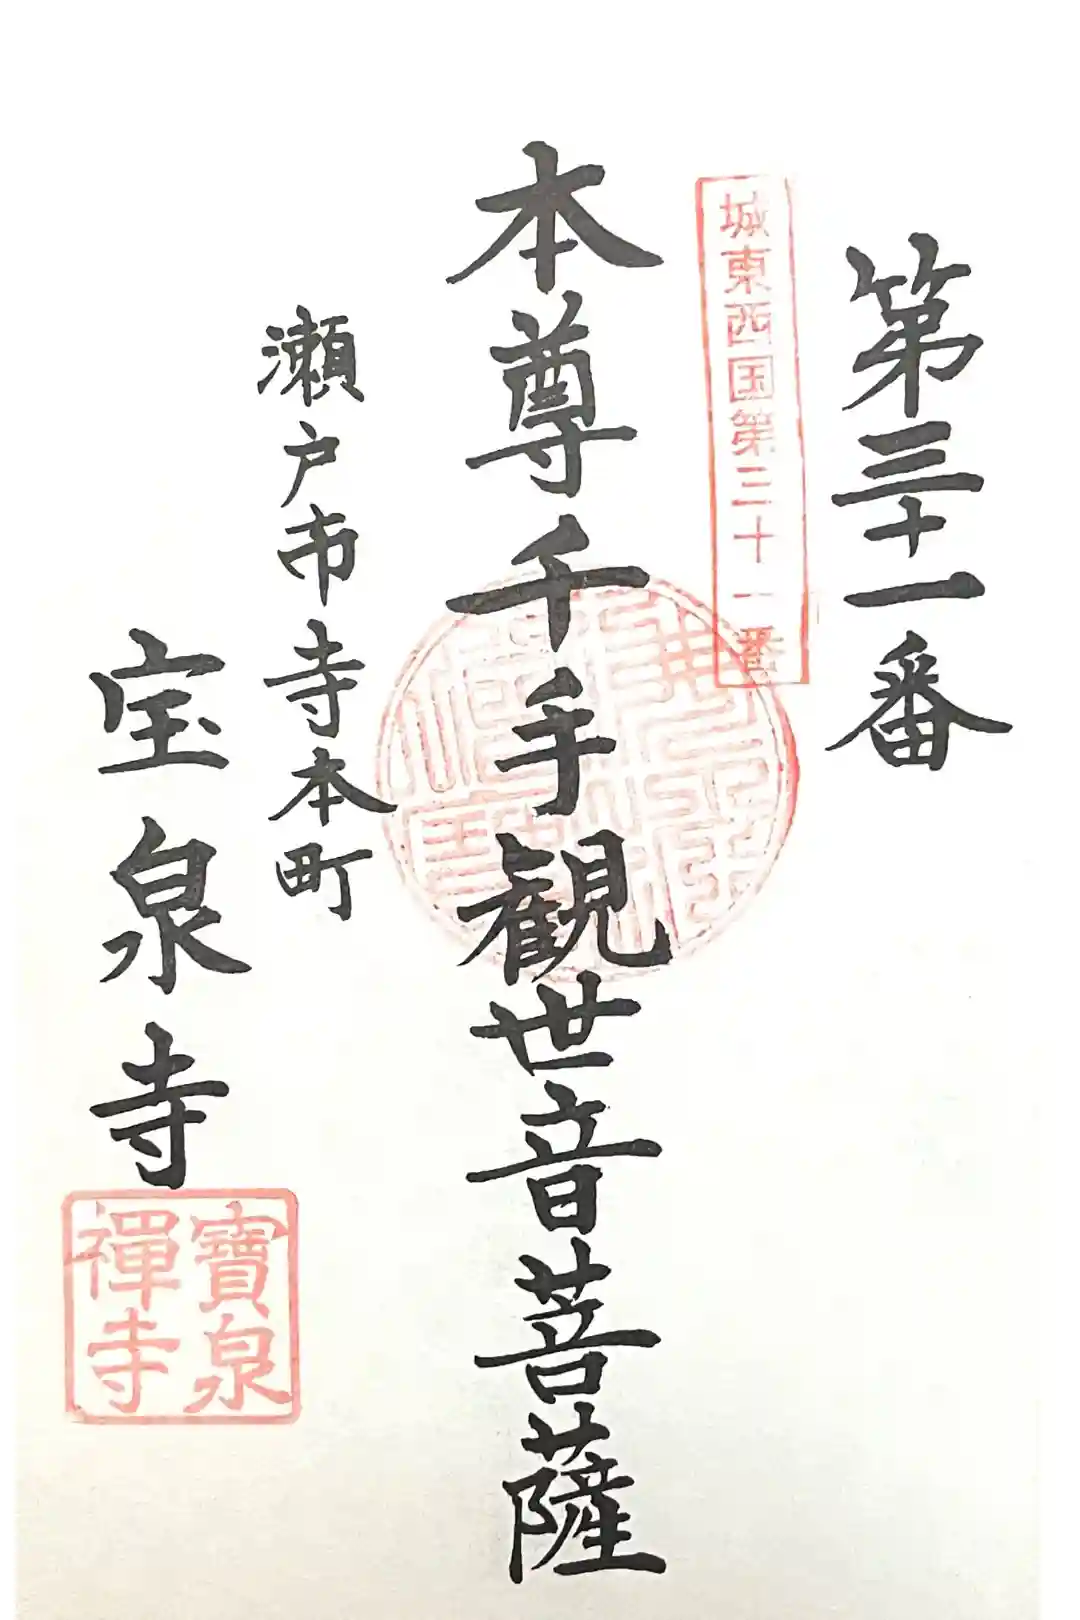 第三十一番
城東西国第三十一番
本尊千手観世音菩薩
瀬戸市寺本町
宝泉寺
寶泉
禅寺